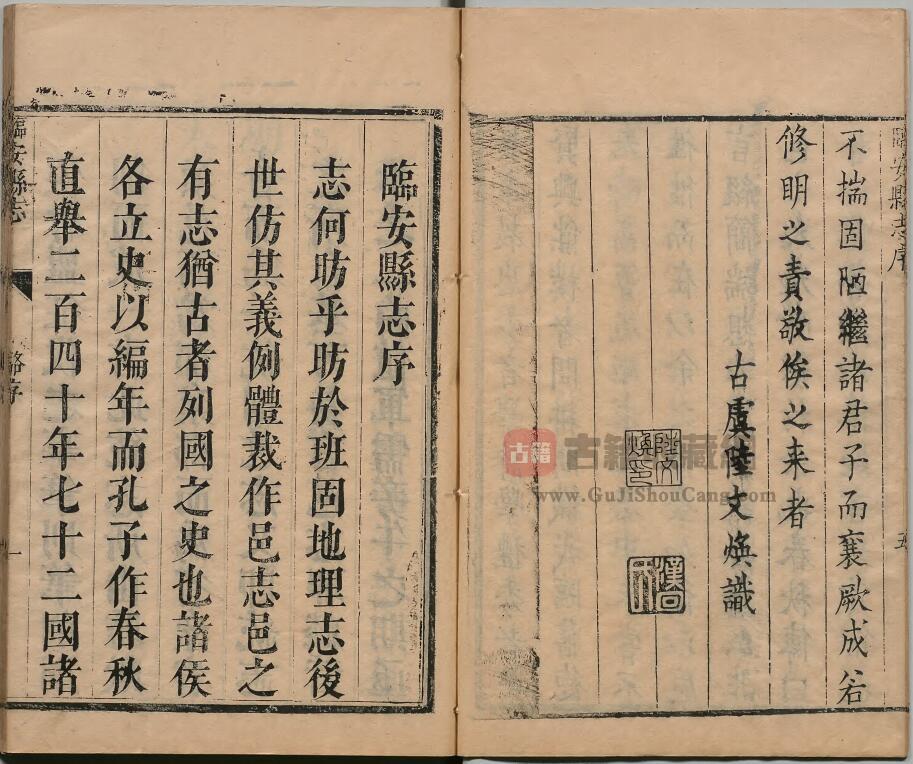 臨安縣志序
不揣固陋繼諸君子而襄厥成若
修明之責敬俟之来者
古虞陸文煥識
陸文煥印
五
古籍
www.GuJiShouCang.com
臨安縣志序
志何昉乎昉於班固地理志後
世仿其義例體裁作邑志邑之
有志猶古者列國之史也諸侯
各立史以編年而孔子作春秋
直舉二百四十年七十二國諸
臨安縣志
序
一